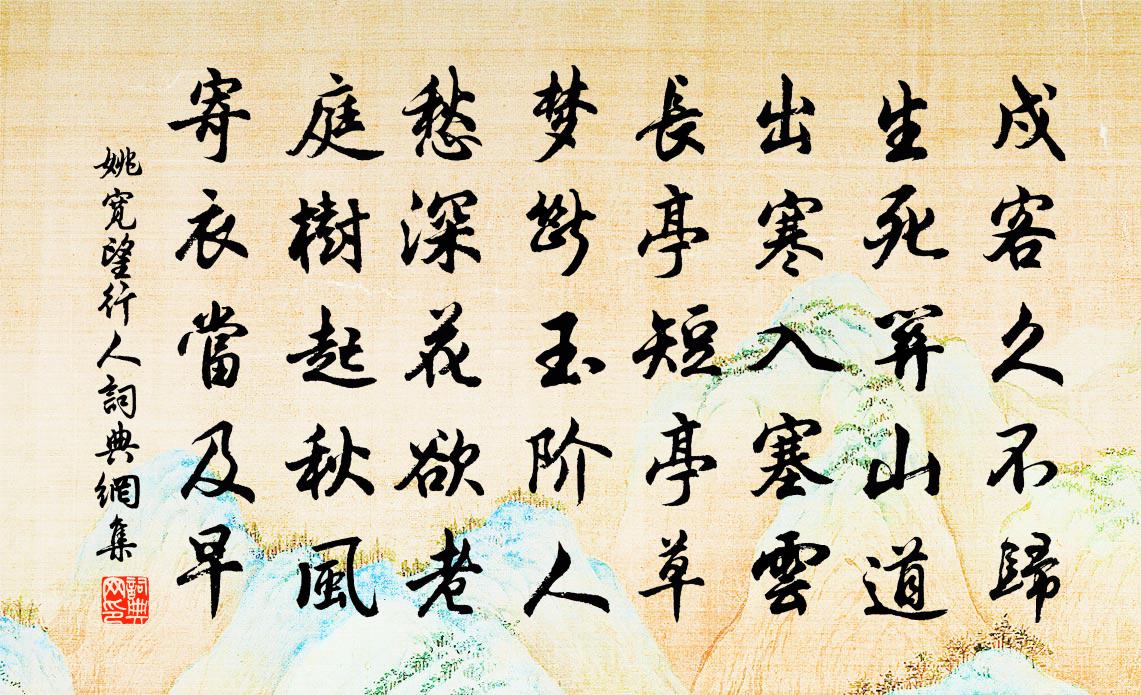 戍客久不歸
生死笄山道
出寒入塞雲
長亭短亭草
梦斷玉阶人
愁深花欲老
庭樹起秋風
寄衣當及早
姚寬望行人詞典網集
詞典
网印